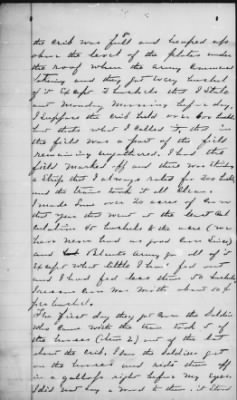 the crib was full and heaped up
above the level of the plates under
the roof when the army commenced
taking and they got every bushel
of it except 2 bushels that I stole
out Monday Morning before day.
I suppose the crib held over 600 bushels
but that's what I called it. this in
the field was a part of the field
remaining ungathered. I had this
field marked off and there was this
a strip that I always rated for 200 bushels
and the train took it all clean.
I made some over 20 acres of Corn
that year that went at the least Cal
culation 40 bushels to the acre (we
have never had as good corn since)
and Blunts army got all of it
except what little I have fed away
and I had fed less than 50 bushels
I reckon Corn was worth about 50 ¢
per bushel.
The first day they got Corn the Soldiers
who came with the train took 2 of
the horses (item 2) out of the lot
about the crib. I saw the soldiers get
on the horses and ride them off
in a gallop right before my eyes.
I did not say a word to them. it